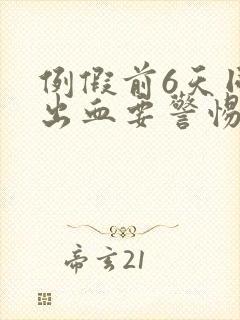 例假前6天
出血要警惕
帝玄21